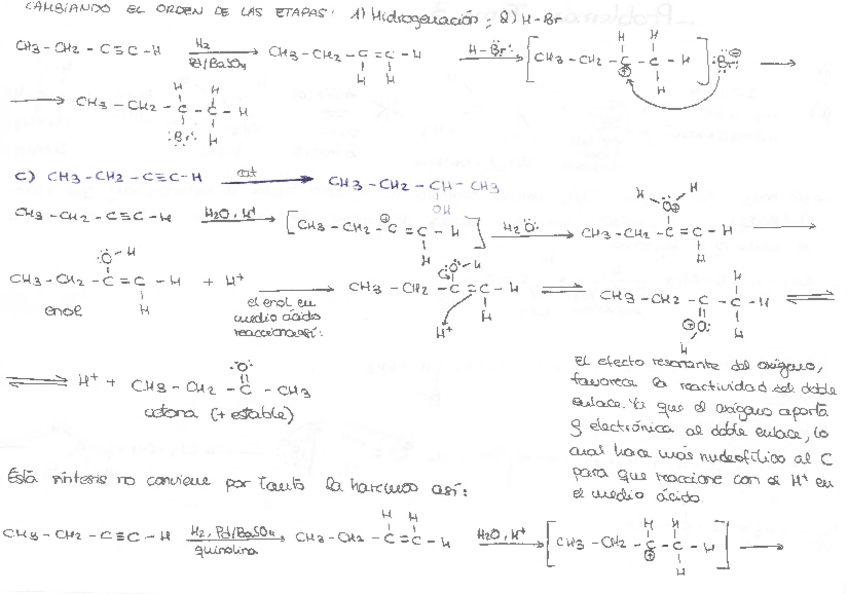 CAMBIANDO EL ORDEN DE LAS ETAPAS: 1) Hidrogenación; 2) H-Br
CH3-CH2-C≡C-H H2 Pd/BaSO4 CH3-CH2-C=C-H H H H-Br: [CH3-CH2-C-C-H H H ⊕ H] :Br: ⊖
CH3-CH2-C-C-H H H :Br: H
C) CH3-CH2-C≡C-H cat CH3-CH2-CH-CH3 OH
CH3-CH2-C≡C-H H2O, H+ [CH3-CH2-C=C-H ⊕ H] H2O: CH3-CH2-C=C-H H O⊕ H H
CH3-CH2-C=C-H :O-H H + H+ CH3-CH2-C=C-H :O-H H H+ CH3-CH2-C-C-H H ⊕O: H H
enol
el enol en
medio ácido
reacciona así:
H+ + CH3-CH2-C-CH3 :O:
cetona (+ estable)
El efecto resonante del oxígeno,
favorece la reactividad del doble
enlace. Ya que el oxígeno aporta
electrónica al doble enlace, lo
cual hace más nucleofílico al C
para que reaccione con el H+ en
el medio ácido.
Esta síntesis no conviene por tanto la haremos así:
CH3-CH2-C≡C-H H2, Pd/BaSO4 quinolina CH3-CH2-C=C-H H H H2O, H+ [CH3-CH2-C-C-H H H ⊕ H]